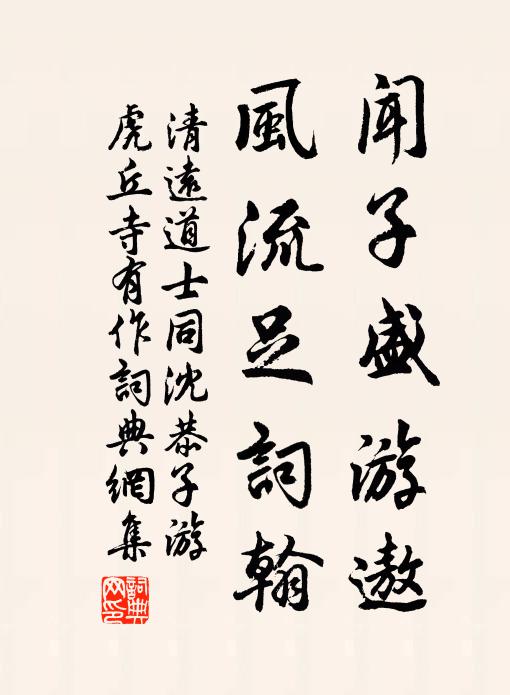 闻子盛游遨
風流足詞翰
清遠道士同沈恭子游
虎丘寺有作詞典網集